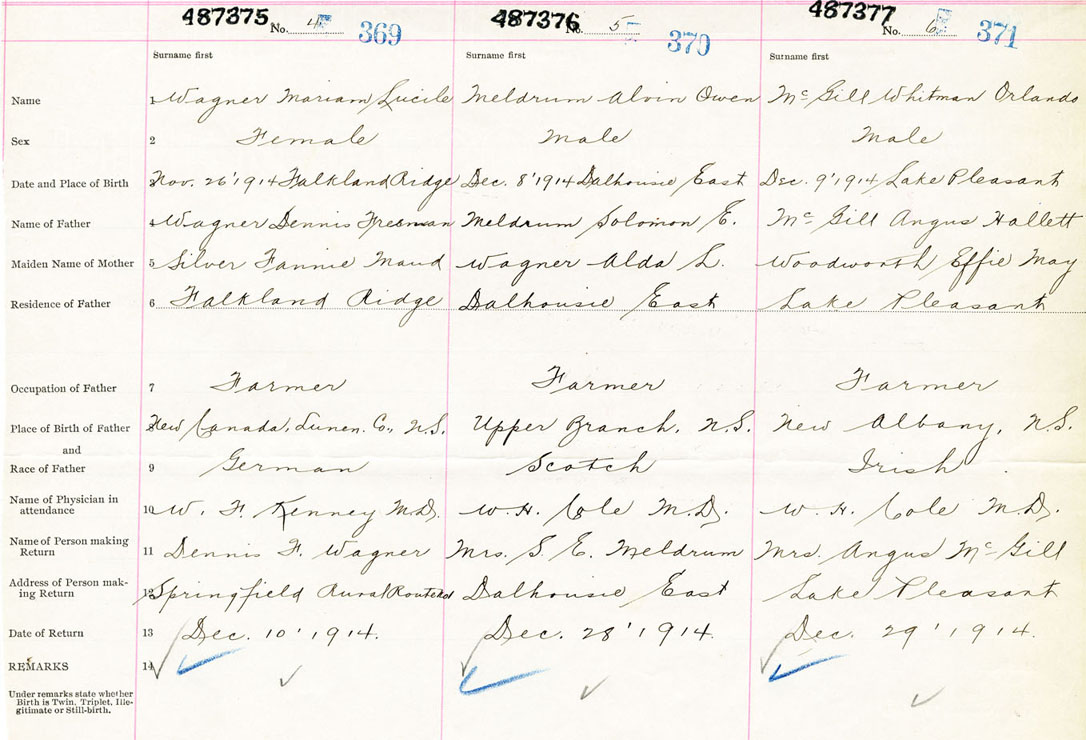 487375 487376 487377
No. 4 369 No. 5 370 No. 6 371
Surname first Surname first Surname first
Name 1 Wagner Mariam Lucile Meldrum Alvin Owen McGill Whitman Orlando
Sex 2 Female Male Male
Date and Place of Birth 3 Nov. 26'1914 Falkland Ridge Dec. 8'1914 Dalhousie East Dec. 9'1914 Lake Pleasant
Name of Father 4 Wagner Dennis Freeman Meldrum Solomon E. McGill Angus Hallett
Maiden Name of Mother 5 Silver Fannie Maud Wagner Alda L. Woodworth Effie May
Residence of Father 6 Falkland Ridge Dalhousie East Lake Pleasant
Occupation of Father 7 Farmer Farmer Farmer
Place of Birth of Father 8 New Canada, Lunen. Co., N.S. Upper Branch, N.S. New Albany, N.S.
and
Race of Father 9 German Scotch Irish
Name of Physician in
attendance 10 W. F. Kenney M.D. W. H. Cole M.D. W. H. Cole M.D.
Name of Person making
Return 11 Dennis F. Wagner Mrs. S. E. Meldrum Mrs. Angus McGill
Address of Person mak-
ing Return 12 Springfield Rural Route Dalhousie East Lake Pleasant
Date of Return 13 Dec. 10'1914. Dec. 28'1914. Dec. 29'1914.
REMARKS 14
Under remarks state whether
Birth is Twin, Triplet, Ille-
gitimate or Still-birth.